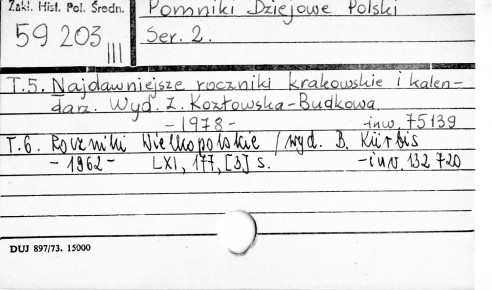 Zakł. Hist. Pol. Średn.
59 203 III
Pomniki Dziejowe Polski
Ser. 2.
T.5. Najdawniejsze roczniki krakowskie i kalen-
darz. Wyd. Z. Kozłowska-Budkowa.
- 1978 - inw. 75139
T.6. Roczniki Wielkopolskie / wyd. B. Kürbis
- 1962 - LXI, 177, [3] s. - inw. 132 720
DUJ 897/73. 15000